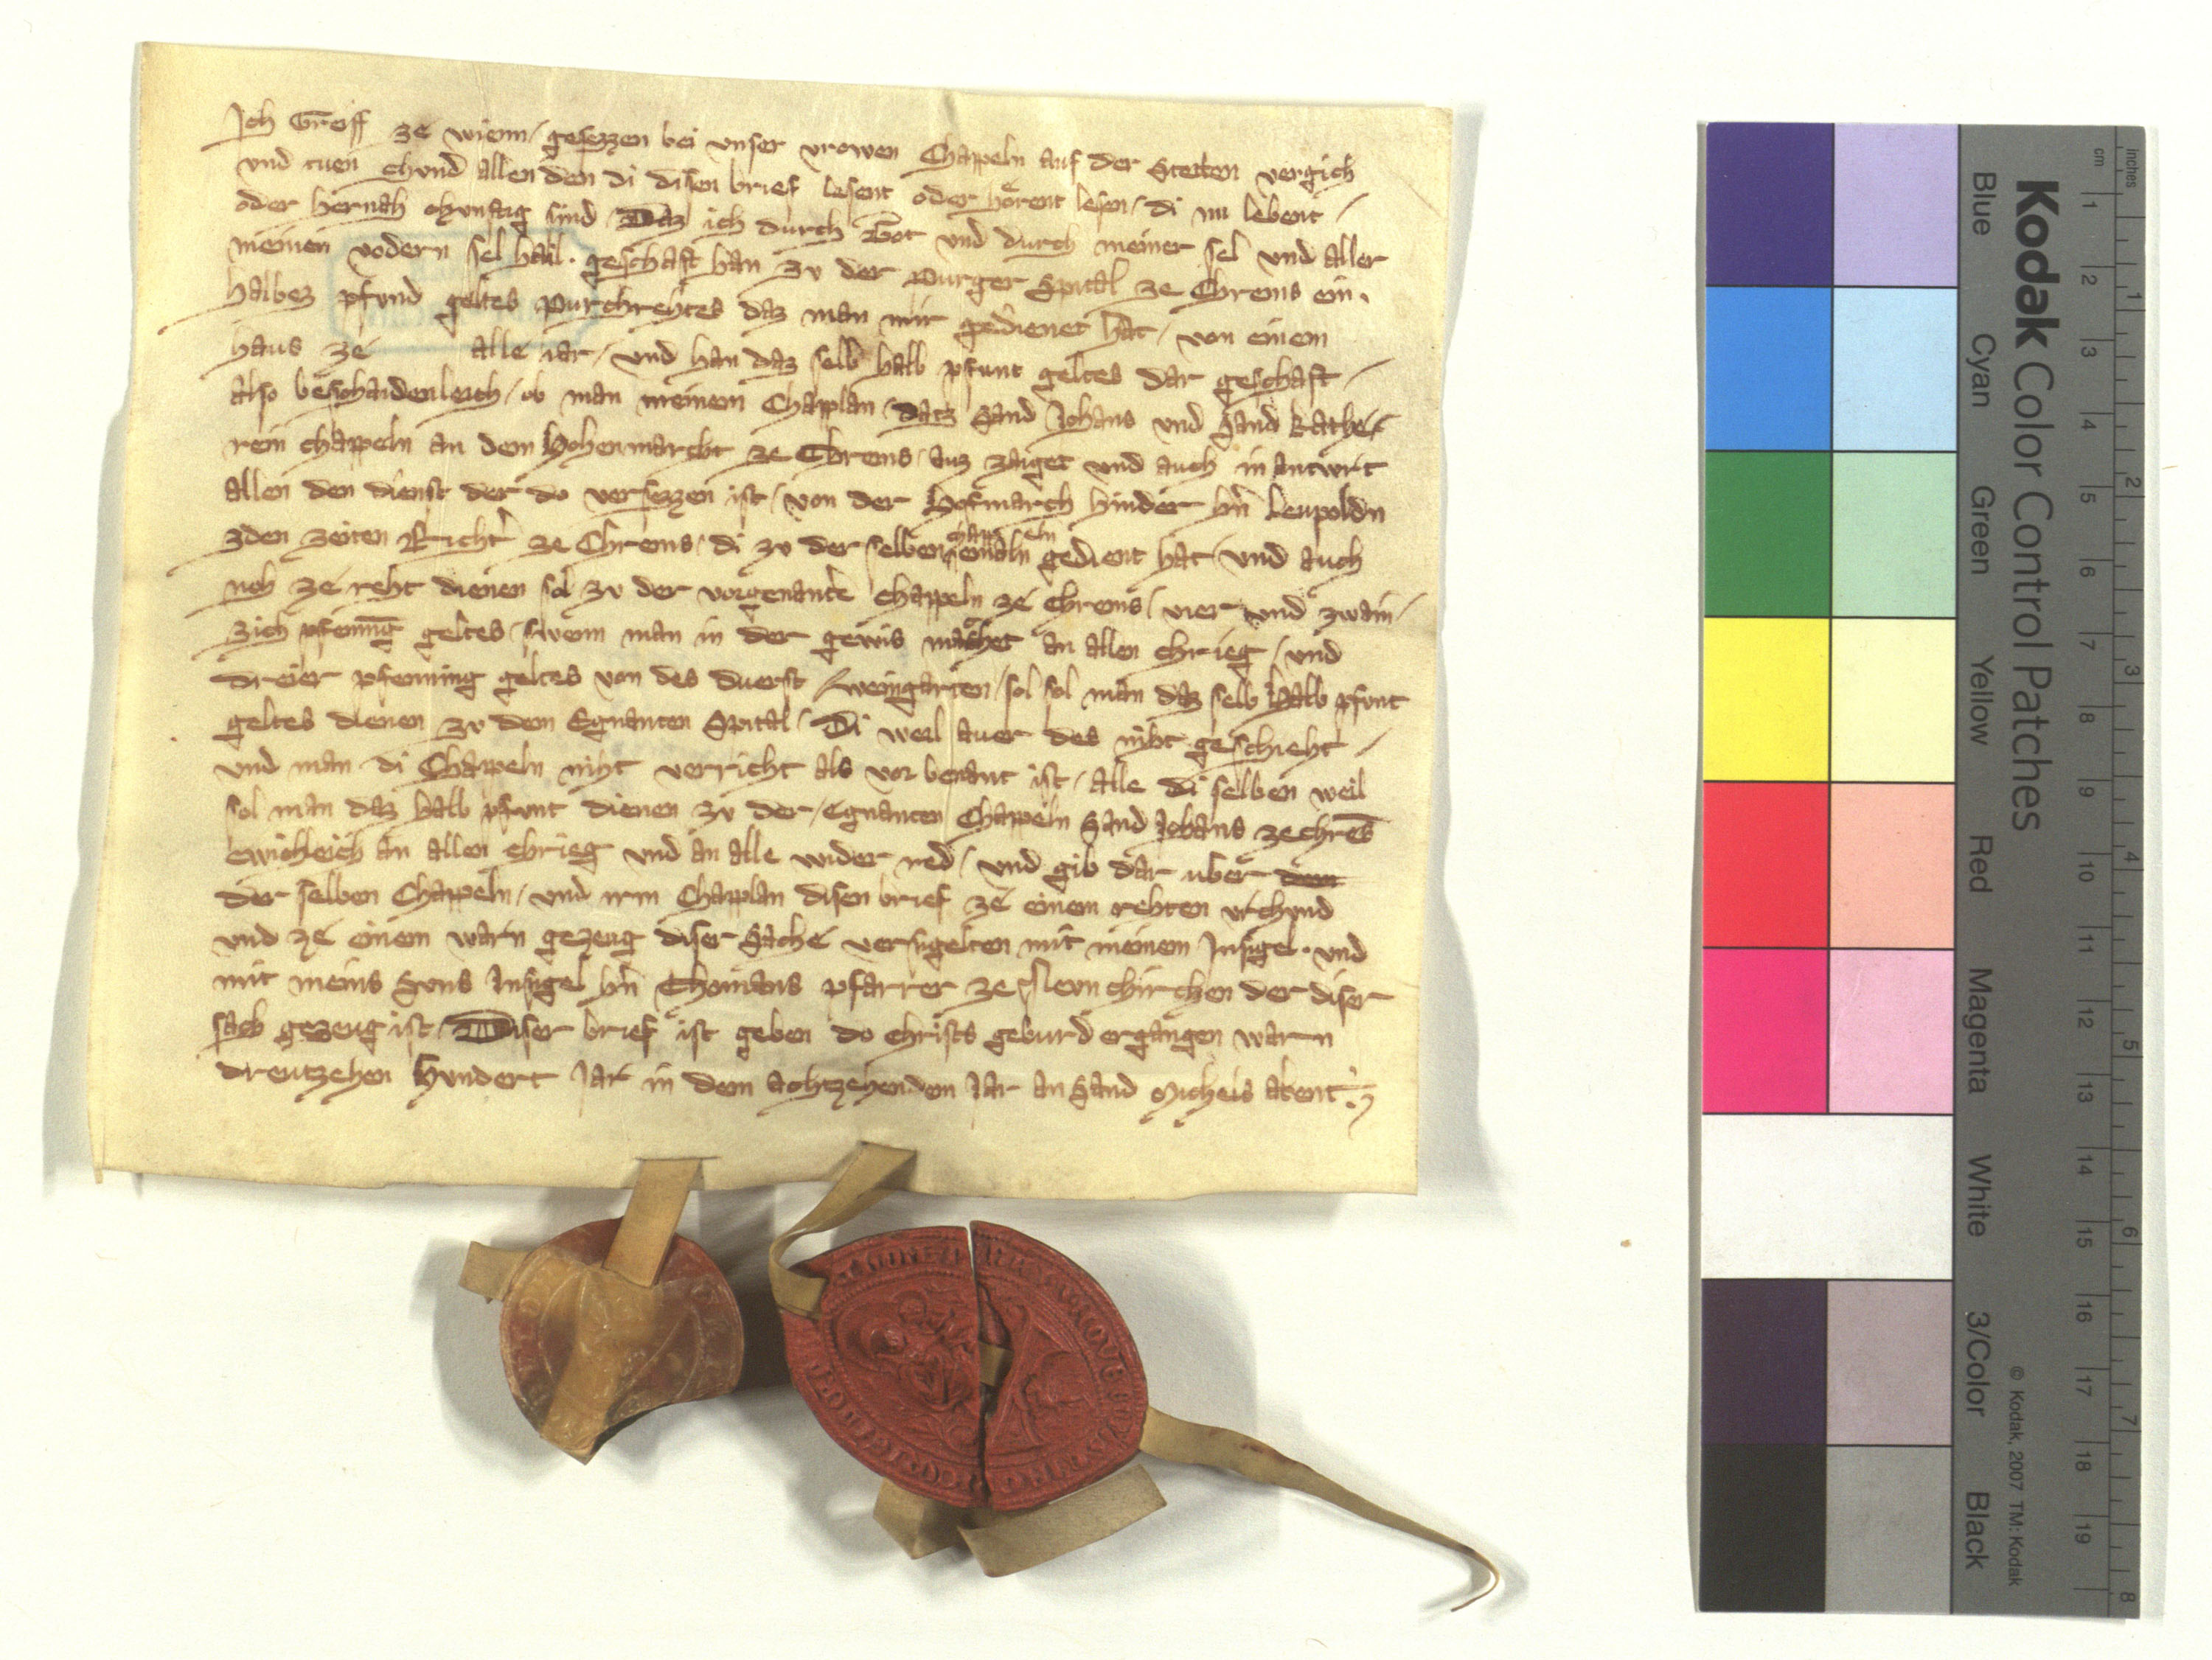 Ich Greiff ze wienn / gesezzen bei vnser vrowen Chappeln auf der Stetten vergich
vnd tuen chvnd allen den di disen brief lesent oder hoͤrent lesen / di nu lebent /
oder hernah chvnftig sind / Daz ich durch Got vnd durch meiner sel vnd aller
meinen vodern sel hail . geschaft han zv der Purger Spital ze Chrems ein .
halbez pfvnd geltes Purchrehtes daz man mir gedienet hat / von einem
haus ze alle iar / vnd han daz selb halb pfunt geltes dar geschaft /
also beschaidenleich / ob man meinem Chapplan / datz Sand Johans vnd Sand kathe /
rein chappeln an dem Hohenmarcht ze Chrems / auz zaiget vnd auch in antwrt
allen den dienst der do versezzen ist / von der Hofmarch hinder hn̄ Leupoldn
zden zeiten Richt̄ ze Chrems / di zv der selben chappeln gedient hat / vnd auch
noh ze reht dienen sol zv der vorgenante chappeln ze Chrems / vier vnd zwain /
zich pfenning geltes / swenn man in der gewis machet an allen chrieg / vnd
dreier pfenning geltes von des duerst weingarten / sol sol man daz selb halb pfvnt
geltes dienen zv dem Egnanten Spital / Di weil auer des niht geschieht /
vnd man di Chappeln niht verricht als vor benant ist / alle di selben weil
sol man daz halb pfvnt dienen zv der / Egnanten Chappeln Sand Johans ze chrēs
ewichleich an allen chrieg vnd an alle wider red / vnd gib dar uber dem
der selben Chappeln / vnd irm Chapplan disen brief ze einem rehten vrchvnd
vnd ze einem warn gezeug diser Sache versigelten mit meinem Insigel . vnd
mit meins Svns Insigel hn̄ Thomans pfarrer ze Nevnchirchen der diser
sach gezeug ist / Diser brief ist geben do Christs geburd ergangen warn
dreutzehen Hvndert Jar in dem achtzehendem Jar an Sand Michels abent .
Kodak Color Control Patches
Blue Cyan Green Yellow Red Magenta White 3/Color Black
© Kodak, 2007 TM: Kodak
cm 1 2 3 4 5 6 7 8 9 10 11 12 13 14 15 16 17 18 19
Inches 1 2 3 4 5 6 7 8